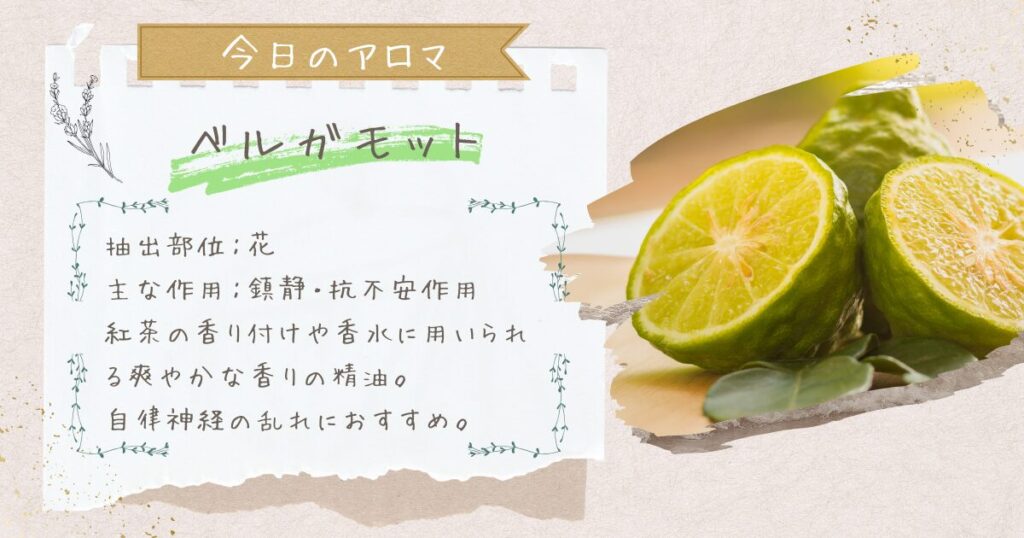 今日のアロマ
ベルガモット
抽出部位；花
主な作用；鎮静・抗不安作用
紅茶の香り付けや香水に用いられ
る爽やかな香りの精油。
自律神経の乱れにおすすめ。